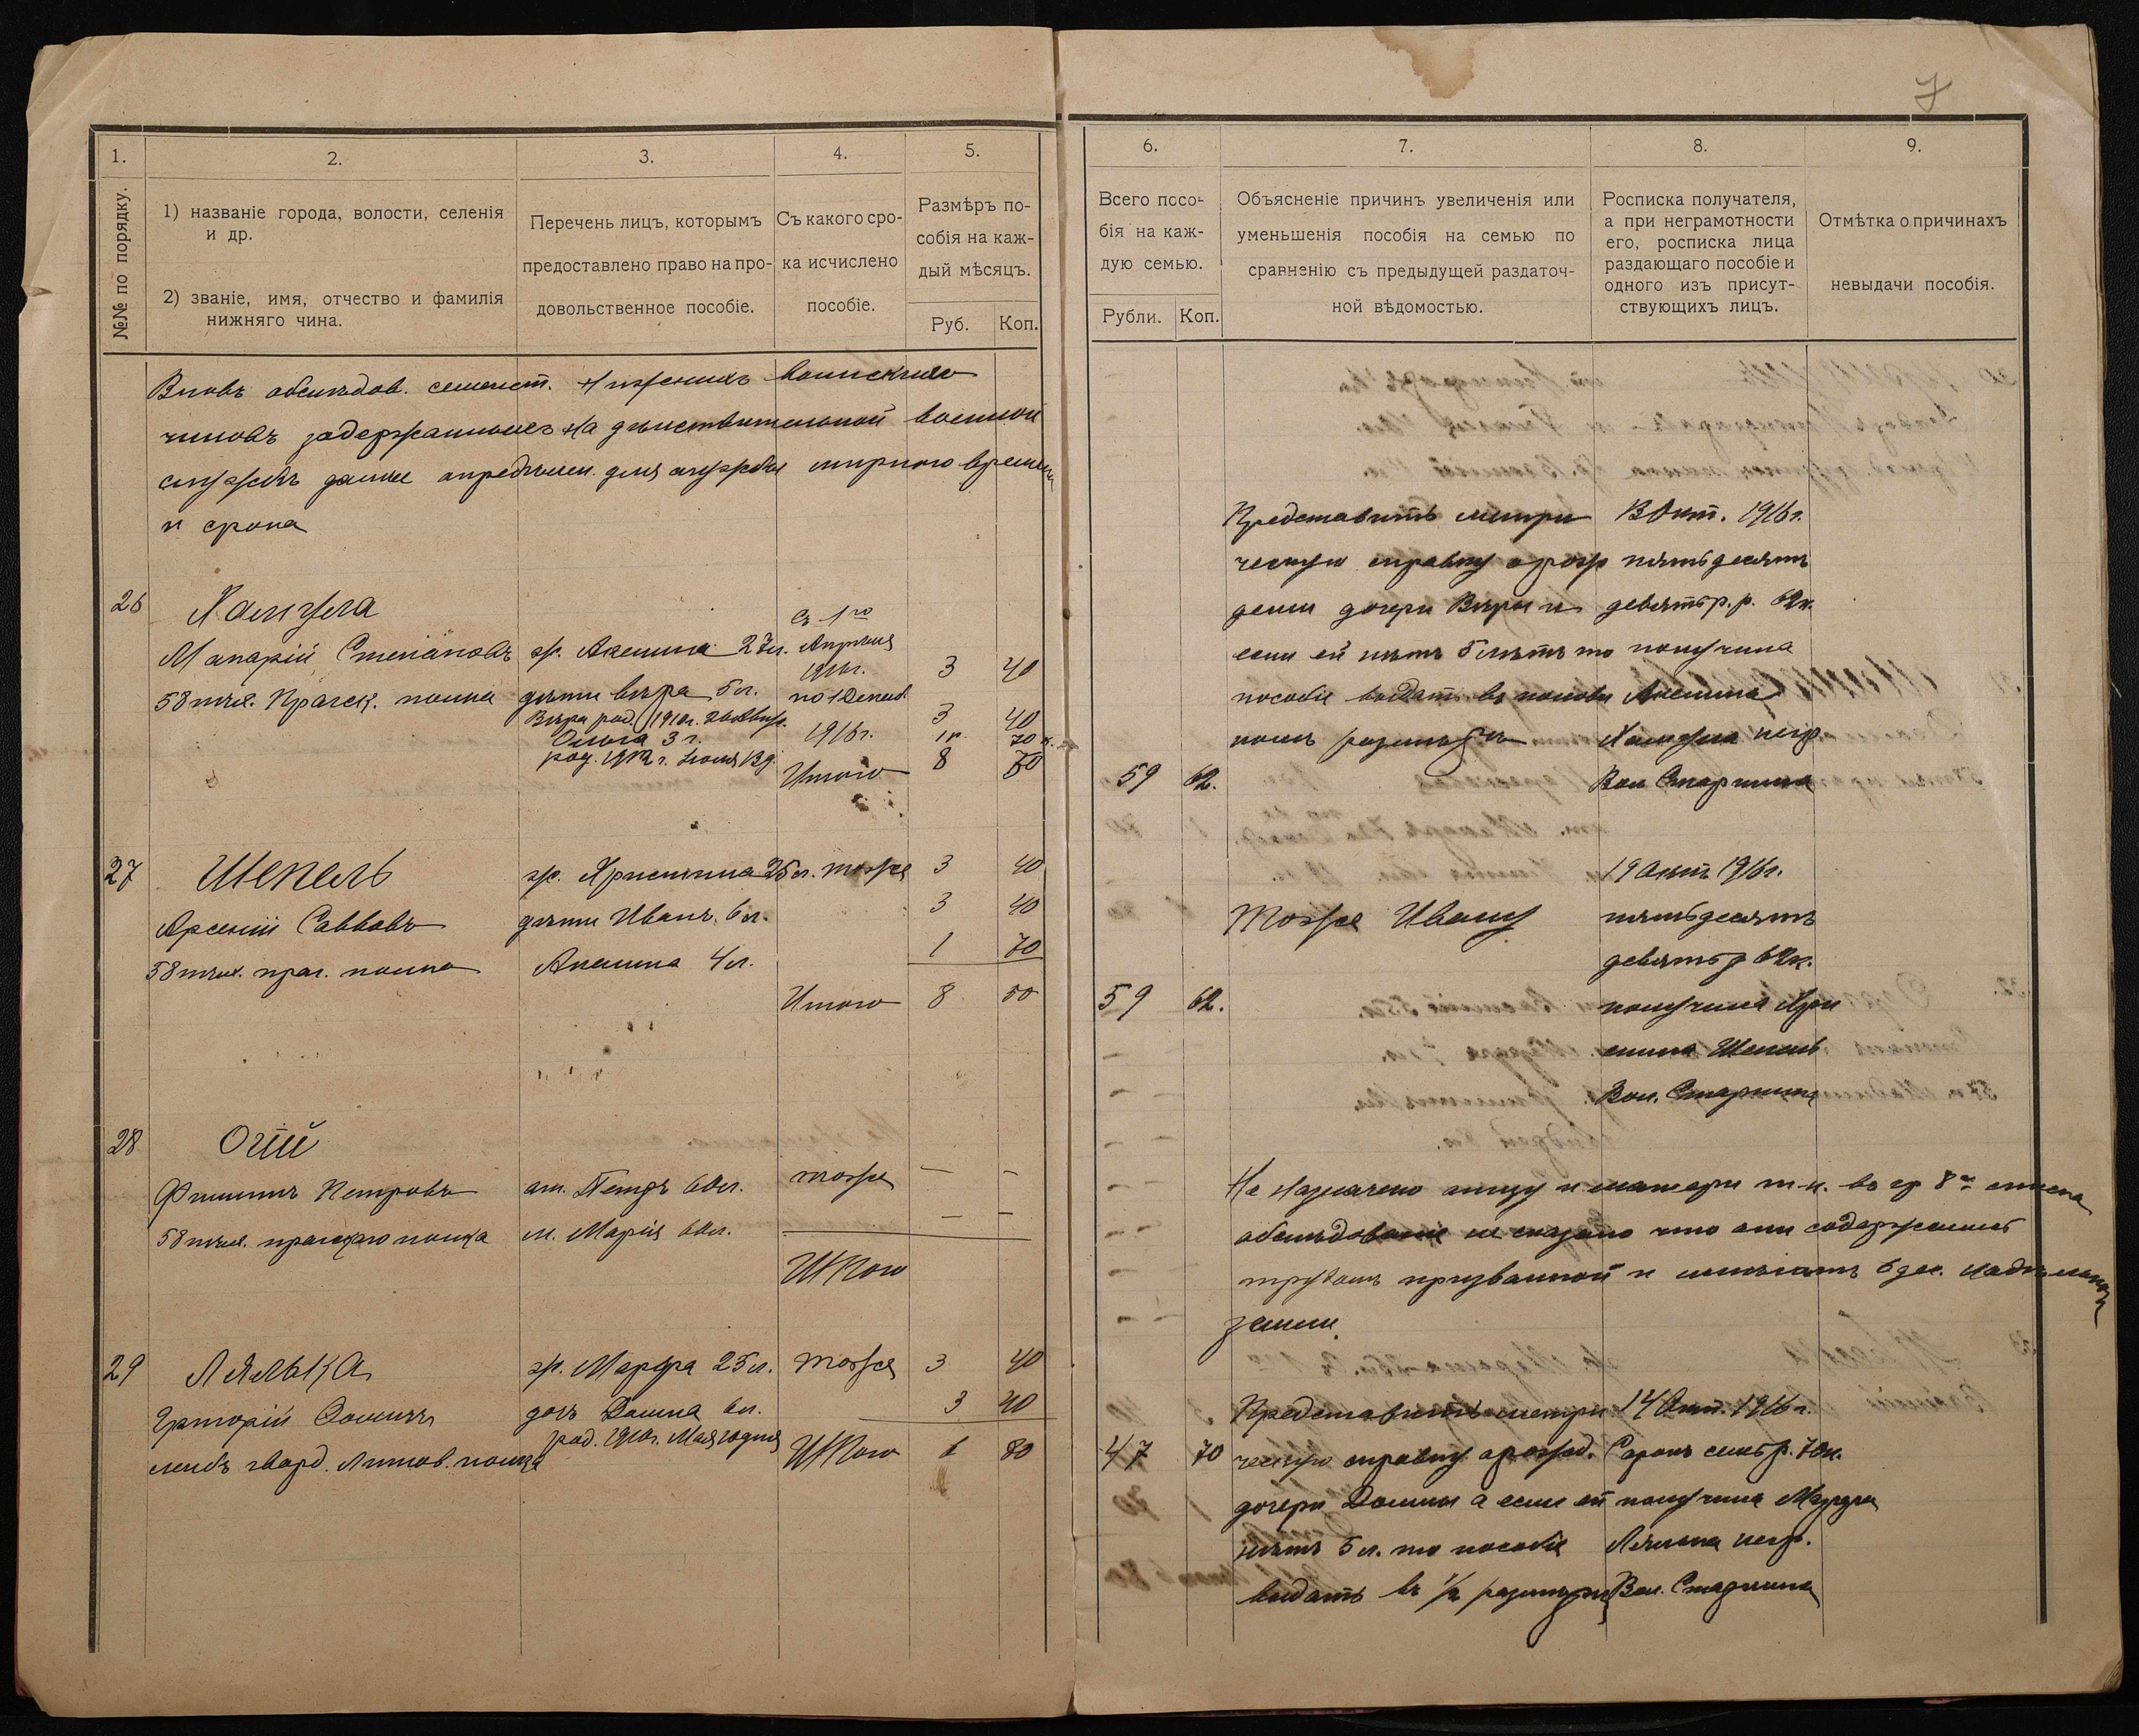 7
1.
2.
3.
4.
5.
№№ по порядку.
1) названіе города, волости, селенія
и др.
2) званіе, имя, отчество и фамилія
нижняго чина.
Перечень лицъ, которымъ
предоставлено право на про-
довольственное пособіе.
Съ какого сро-
ка исчислено
пособіе.
Размѣръ по-
собія на каж-
дый мѣсяцъ.
Руб.
Коп.
6.
7.
8.
9.
Всего посо-
бія на каж-
дую семью.
Рубли.
Коп.
Объясненіе причинъ увеличенія или
уменьшенія пособія на семью по
сравненію съ предыдущей раздаточ-
ной вѣдомостью.
Росписка получателя,
а при неграмотности
его, росписка лица
раздающаго пособіе и
одного изъ присут-
ствующихъ лицъ.
Отмѣтка о причинахъ
невыдачи пособія.
Вновь обслѣдов. семейст. нижнихъ воинскихъ
чиновъ задержанныхъ на дѣйствительной военной
службѣ далѣе опредѣлен. для службы мирного времени
и срока
26
Халчула
Макарій Степановъ
58 пѣх. Прагск. полка
ж. Аксинья 27 л.
дѣти Вѣра 5 л.
Вѣра род. 1910 г.
Ольга 3 г.
род. 1912 г. Іюля 13 д.
съ 1го
Апрѣля
1916 г.
по 1 Декаб.
1916 г.
Итого
3 40
3 40
1 р. 70 к.
8 50
59 62.
Представить метри
ческую справку о рож
деніи дочери Вѣры и
если ей нѣтъ 5 лѣтъ то
пособіе выдать въ полови
номъ размѣрѣ
3 Окт. 1916 г.
пятьдесятъ
девять р. р. 62 к.
получила
Аксинья
Халчула негр.
Вол Старшина
27
Шепель
Арсеній Саввовъ
58 пѣх. праг. полка
ж. Христина 25 л.
дѣти Иванъ 6 л.
Аксинья 4 л.
тоже
Итого
3 40
3 40
1 70
8 50
59 62.
Тоже Ивану
19 Окт 1916 г.
пятьдесятъ
девять р 62 к.
получила Хри
стина Шепель
Вол. Старшина
28
Огій
Филиппъ Петровъ
58 пѣх. прагского полка
от. Петръ 60 л.
м. Марія 60 л.
тоже
— —
— —
Итого
Не назначено отцу и матери т. к. въ гр 8й списка
обслѣдованія не сказано что они содержались
трудомъ призванной и имѣютъ 6 дес. надѣльной
земли
29
Лялька
Григорій Фоминъ
лейбъ гвард. Литов. полка
ж. Марфа 25 л.
дочь Домна 6 л.
род. 1910 г. Мая 10 дня
тоже
Итого
3 40
3 40
6 80
47 70
Представить метри
ческую справку о рожд.
дочери Домны а если ей
нѣтъ 5 л. то пособіе
выдать въ ½ размѣрѣ
14 Окт. 1916 г.
Сорокъ семь р. 70 к.
получила Марфа
Лялька негр.
Вол. Старшина